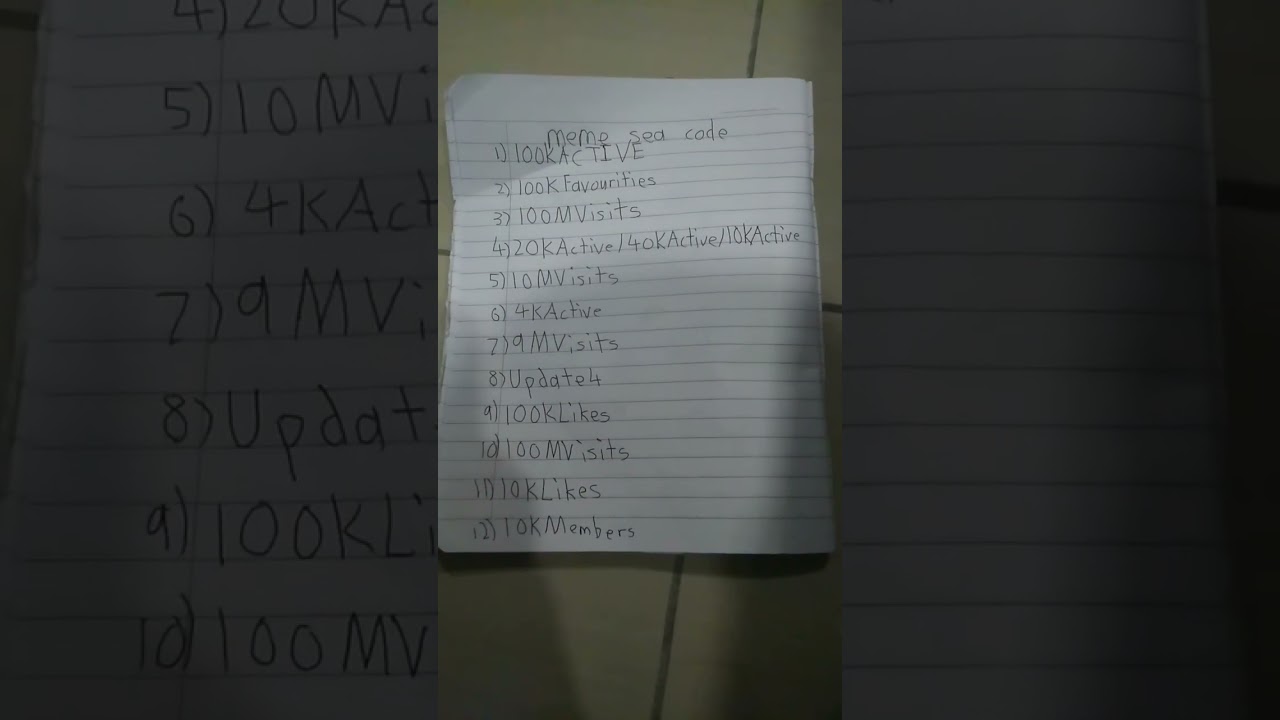 meme sea code
1) 100KACTIVE
2) 100KFavourities
3) 100MVisits
4) 20KActive/40KActive/10KActive
5) 10MVisits
6) 4KActive
7) 9MVisits
8) Update4
9) 100KLikes
10) 100MVisits
11) 10KLikes
12) 10KMembers